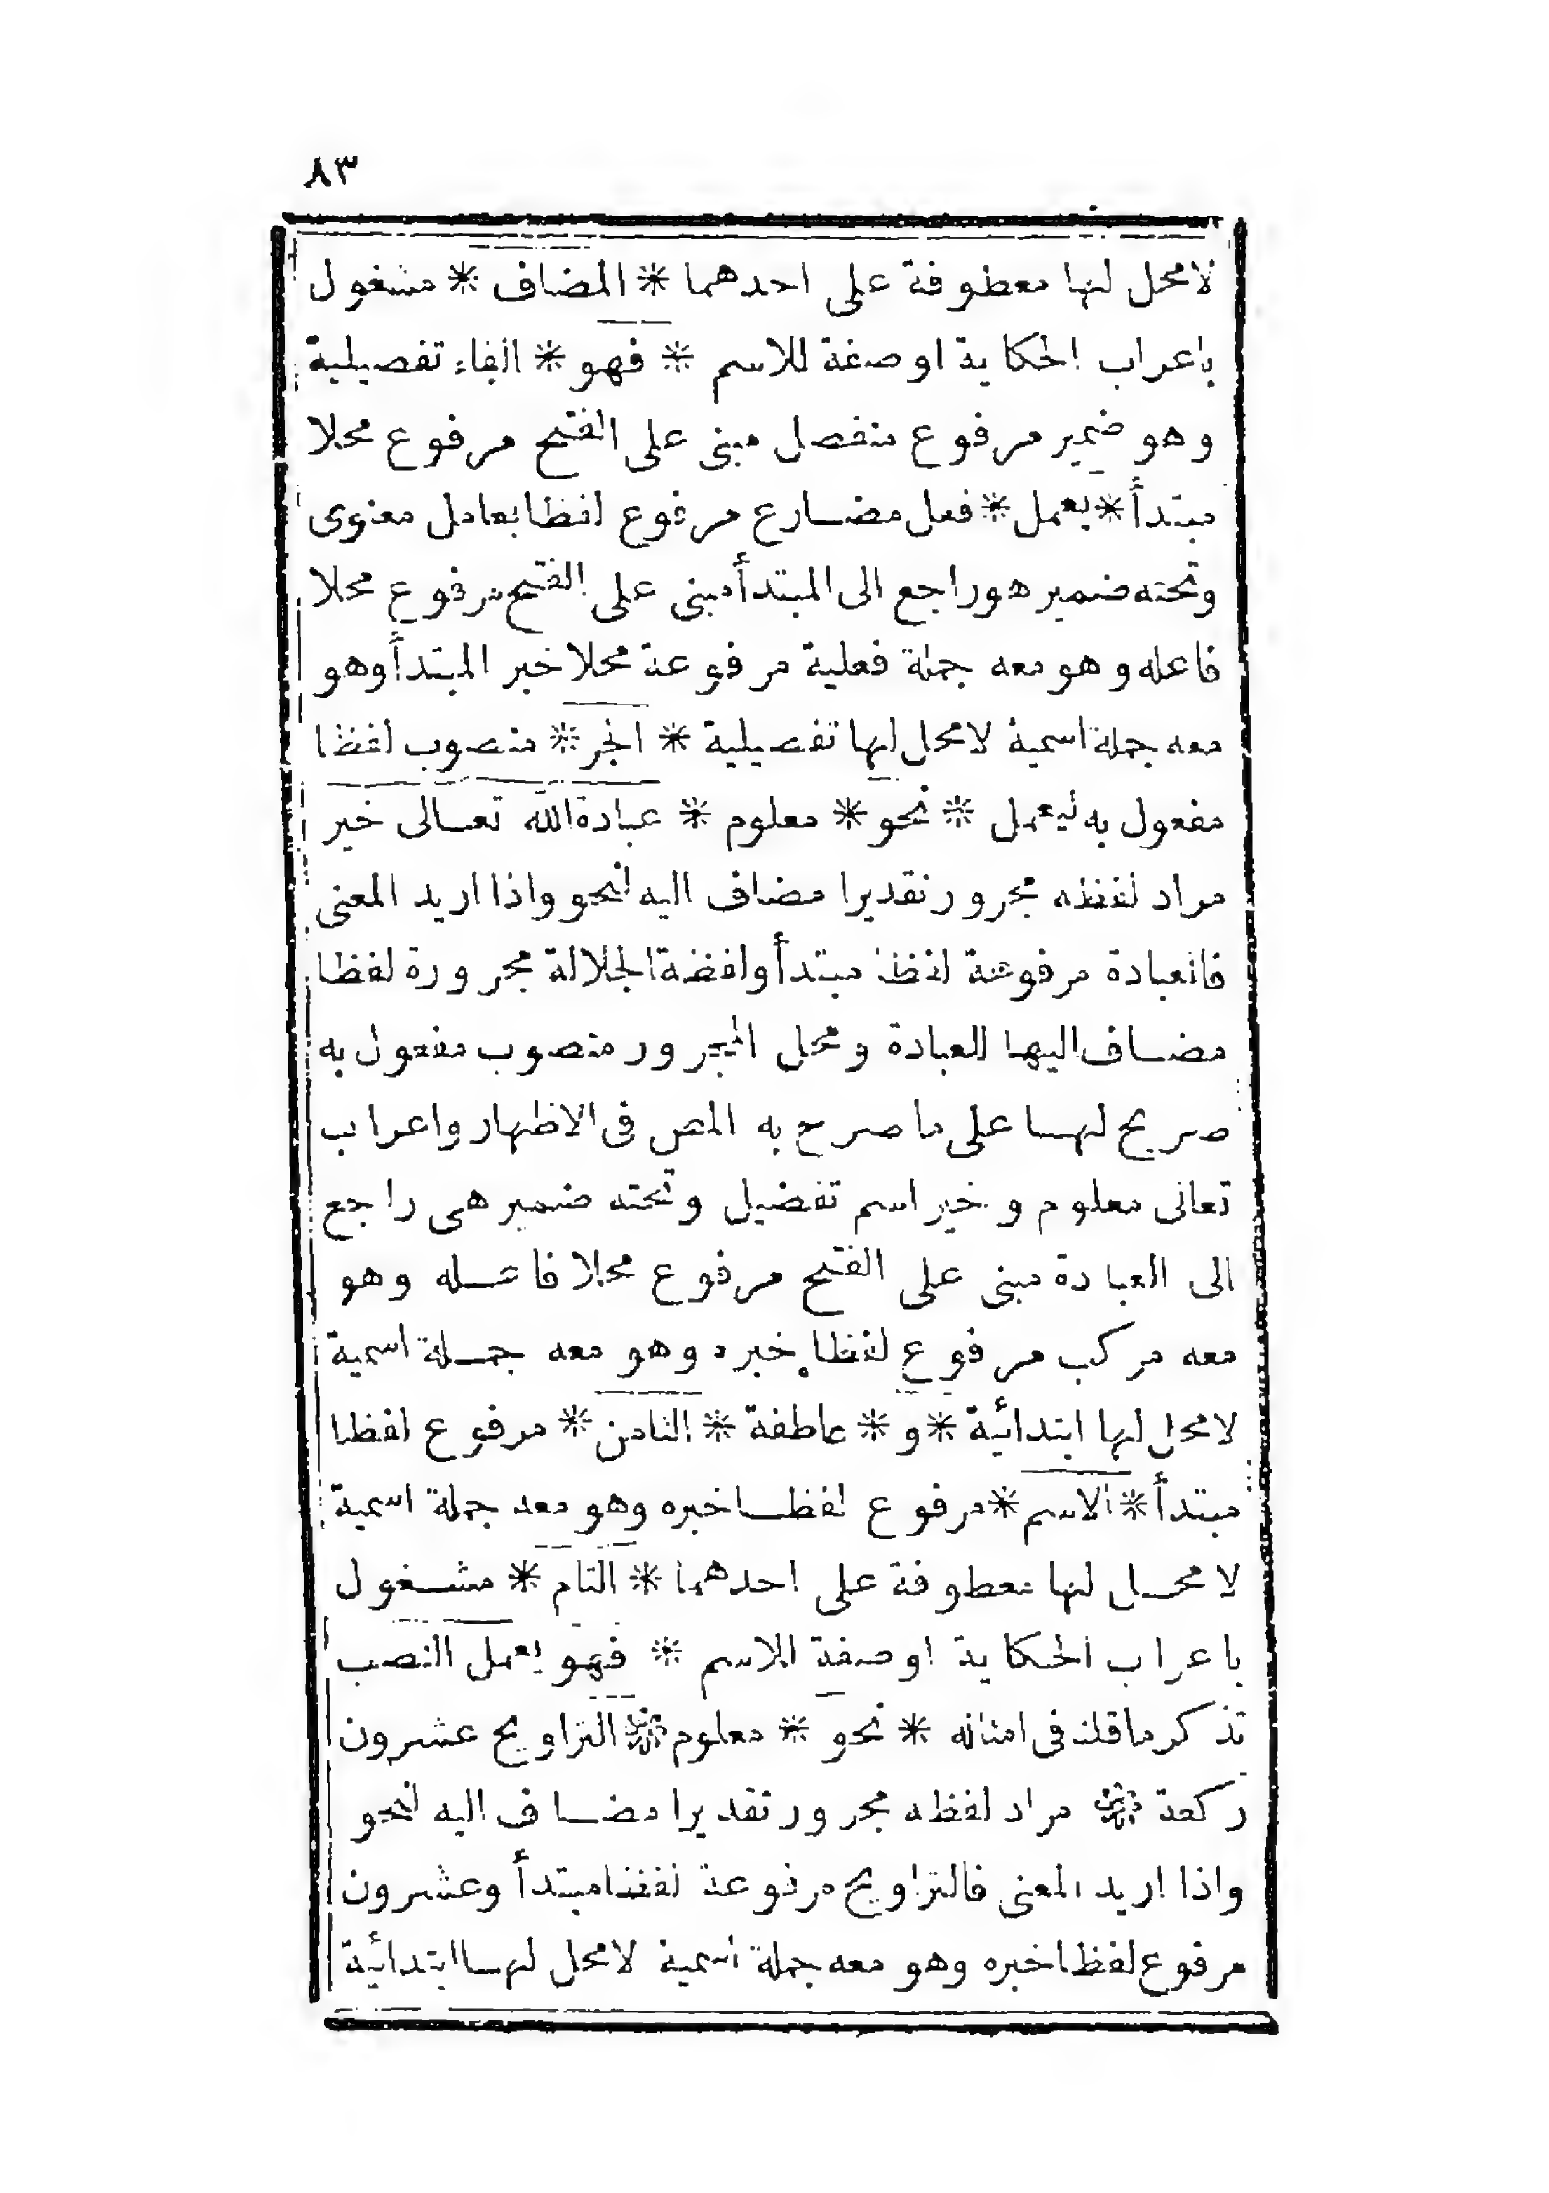 ٨٣
لا محل لها معطوفة على احدهما * المضاف * مشغول
باعراب الحكاية او صفة للاسم * فهو * الفاء تفصيلية
وهو ضمير مرفوع منفصل مبنى على الفتح مرفوع محلا
مبتدأ * يعمل * فعل مضارع مرفوع لفظا بعامل معنوى
وتحته ضمير هو راجع الى المبتدأ مبنى على الفتح مرفوع محلا
فاعله وهو معه جملة فعلية مرفوعة محلا خبر المبتدأ وهو
معه جملة اسمية لا محل لها تفصيلية * الجر * منصوب لفظا
مفعول به ليعمل * نحو * معلوم * عبادة الله تعالى خير
مراد لفظه مجرور تقديرا مضاف اليه لنحو واذا اريد المعنى
فالعبادة مرفوعة لفظا مبتدأ ولفظة الجلالة مجرورة لفظا
مضاف اليها للعبادة ومحل المجرور منصوب مفعول به
صريح لها على ما صرح به المص فى الاظهار واعراب
تعالى معلوم وخير اسم تفضيل وتحته ضمير هى راجع
الى العبادة مبنى على الفتح مرفوع محلا فاعله وهو
معه مركب مرفوع لفظا خبره وهو معه جملة اسمية
لا محل لها ابتدائية * و * عاطفة * الثامن * مرفوع لفظا
مبتدأ * الاسم * مرفوع لفظا خبره وهو معه جملة اسمية
لا محل لها معطوفة على احدهما * التام * مشغول
باعراب الحكاية او صفة للاسم * فهو يعمل النصب
تذكر ما قلنا فى امثاله * نحو * معلوم * التراويح عشرون
ركعة * مراد لفظه مجرور تقديرا مضاف اليه لنحو
واذا اريد المعنى فالتراويح مرفوعة لفظا مبتدأ وعشرون
مرفوع لفظا خبره وهو معه جملة اسمية لا محل لها ابتدائية